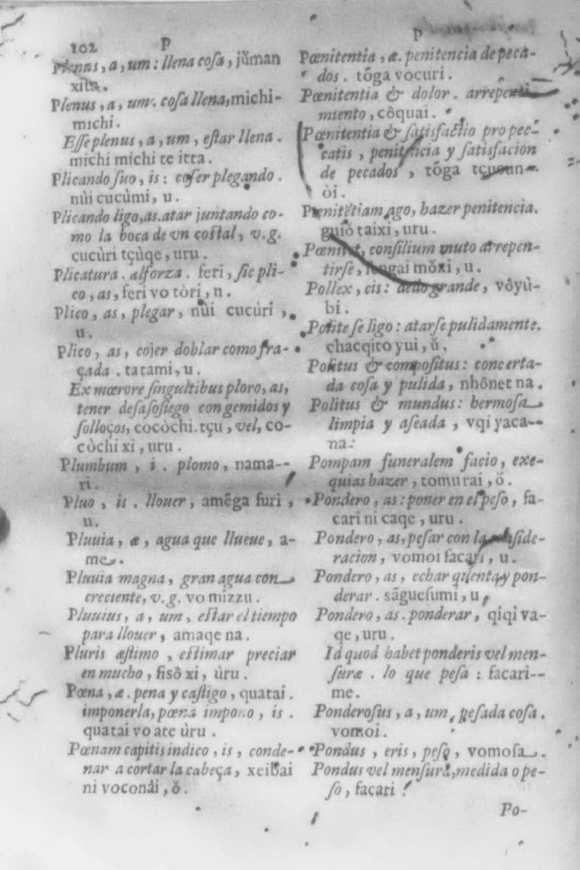 102 P
Plenus, a, um: llena cosa, jŭman
xita.
Plenus, a, um. cosa llena, michi-
michi.
Esse plenus, a, um, estar llena.
michi michi te itta.
Plicando suo, is: coser plegando.
nùi cucùmi, u.
Plicando ligo, as. atar juntando co-
mo la boca de vn costal, v.g.
cucùri tçùqe, uru.
Plicatura. alforza. feri, sic pli-
co, as, feri vo tòri, u.
Plico, as, plegar, nùi cucùri,
u.
Plico, as, cojer doblar como fra-
çada. tatami, u.
Ex mœrore singultibus ploro, as,
tener desasosiego con gemidos y
solloços, cocòchi. tçu, vel, co-
còchi xi, uru.
Plumbum, i. plomo, nama-
ri.
Pluo, is. llouer, amẽga furi,
u.
Pluuia, æ, agua que llueue, a-
me.
Pluuia magna, gran agua con
creciente, v.g. vo mizzu.
Pluuius, a, um, estar el tiempo
para llouer, amaqe na.
Pluris æstimo, estimar preciar
en mucho, fisô xi, ùru.
Pœna, æ. pena y castigo, quatai.
imponerla, pœna impono, is.
quatai vo ate ùru.
Pœnam capitis indico, is, conde-
nar a cortar la cabeça, xeibai
ni voconài, ŏ.
P
Pœnitentia, æ. penitencia de peca-
dos. tõga vocuri.
Pœnitentia & dolor. arrepenti
miento, côquai.
Pœnitentia & satisfactio pro pec-
catis, penitencia y satisfacion
de pecados, tõga
òi.
Pœnitẽtiam ago, hazer penitencia.
guiô taixi, uru.
Pœnitet, consilium muto arrepen-
tirse, mŏxi, u.
Pollex, cis: dedo grande, vôyù-
bi.
Polite se ligo: atarse pulidamente.
chacqito yui, ŭ.
Politus & compositus: concerta-
da cosa y pulida, nhônet na.
Politus & mundus: hermosa
limpia y aseada, vqi yaca-
na.
Pompam funeralem facio, exe-
quias hazer, tomurai, ŏ.
Pondero, as: poner en el peso, fa-
cari ni caqe, uru.
Pondero, as, pesar con la conside-
racion, vomoi facari, u.
Pondero, as, echar quenta y pon-
derar. sãguesumi, u,
Pondero, as. ponderar, qiqi va-
qe, uru.
Id quod habet ponderis vel men-
suræ. lo que pesa: facari-
me.
Ponderosus, a, um, pesada cosa.
vomoi.
Pondus, eris, peso, vomosa.
Pondus vel mensura, medida o pe-
so, facari.
Po-